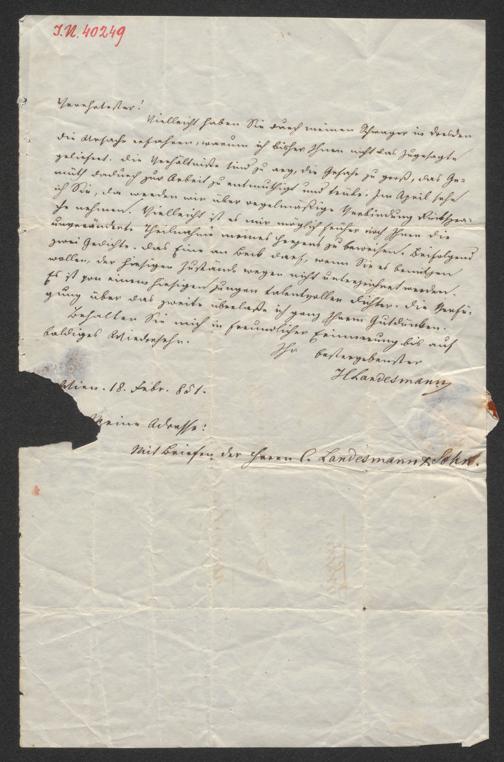 I.N. 40249
Verehrtester!
Vielleicht haben Sie durch meinen Schwager in Dresden
die Ursache erfahren, warum ich bisher Ihnen nicht das Zugesagte
geliefert. Die Verhältniße sind zu arg, die Gefahr zu groß, das Ge-
müth dadurch zur Arbeit zu entmuthigt und trübe. Im April sehe
ich Sie, da werden wir über regelmäßige Verbindung Rückspra-
che nehmen. Vielleicht ist es mir möglich früher noch Ihnen die
ungeänderte Theilnahme meines Herzens zu beweisen. Beifolgend
zwei Gedichte. Das Eine an Beck darf, wenn Sie es benützen
wollen, der hiesigen Zustände wegen nicht unterzeichnet werden.
Es ist von einem hiesigen jungen talentvollen Dichter. Die Verfü-
gung über das zweite überlaße ich ganz Ihrem Gutdünken.
Behalten Sie mich in freundlicher Erinnerung bis auf
baldiges Wiedersehn.
Ihr bestergebenster
HLandesmann
Wien. 18. Febr. 851.
Meine Adresse:
Mit Briefen der Herren C. Landesmann & Sohn.